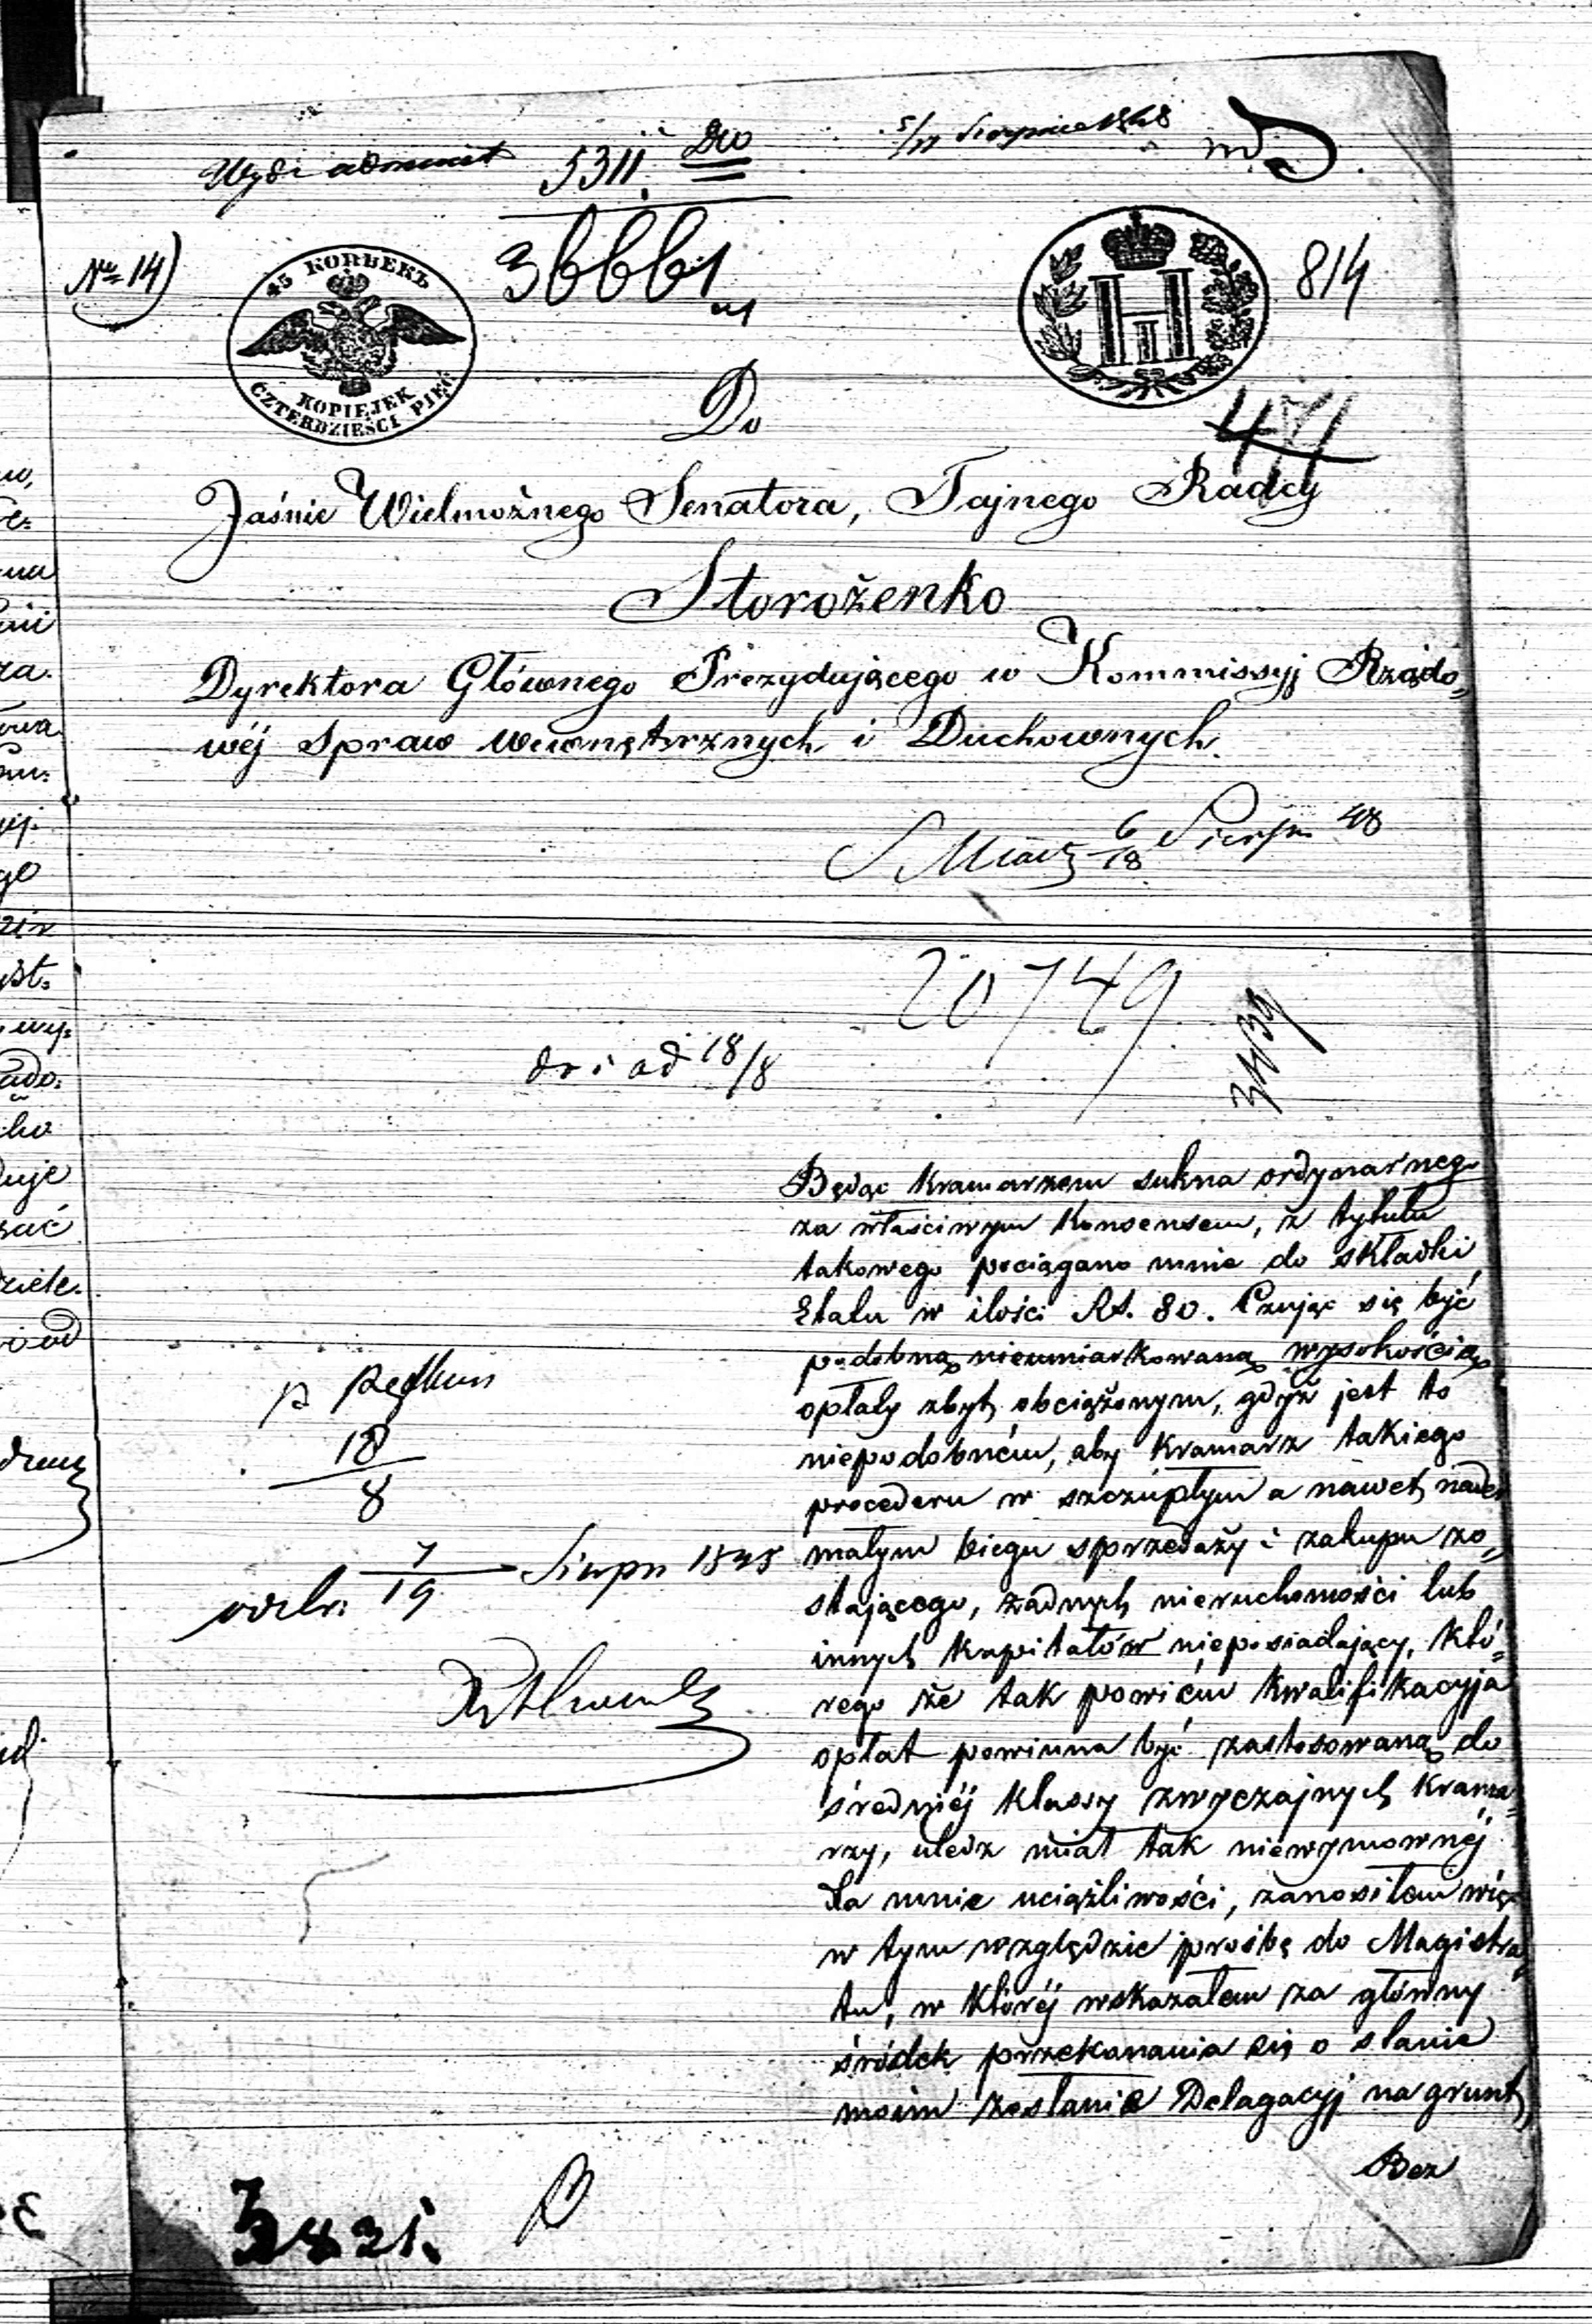 5/17 Sierpnia 1848
5311.
№ 14)
36661
814
45 KOПѢЕКЪ
KOPIEJEK
CZTERDZIEŚCI PIĘĆ
Do
Jaśnie Wielmożnego Senatora, Tajnego Radcy
Storożenko
Dyrektora Głównego Prezydującego w Kommissyj Rządo„
wéj Spraw Wewnętrznych i Duchownych.
6/18 Sierpn 48
20749
18/8
Będąc kramarzem sukna ordynarnego
za właściwym Konsensem, z tytułu
takowego pociągano mnie do składki
Etatu w ilości Rs. 80. Czując się być
podobną nieumiarkowaną wysokością
opłaty zbyt obciążonym, gdyż jest to
niepodobném, aby Kramarz takiego
procederu w szczupłym a nawet nader
małym biegu sprzedaży i zakupu zo„
stającego, żadnych nieruchomości lub
innych kapitałów nieposiadający, któ„
rego że tak powiém kwalifikacyja
opłat powinna być zastosowaną do
średniéj klassy zwyczajnych krama„
rzy, uledz miał tak niewymownéj
dla mnie uciążliwości, zanosiłem więc
w tym względzie prośbę do Magistra„
tu, w któréj wskazałem za główny
śródek przekonania się o stanie
moim zesłanie Delagacyj na grunt,
Bez
18
8
7/19 Sierpn 1848